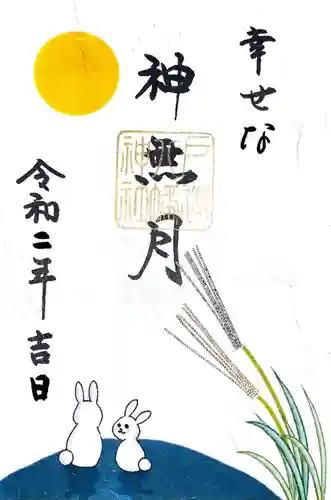 幸せな
神無月
令和二年吉日